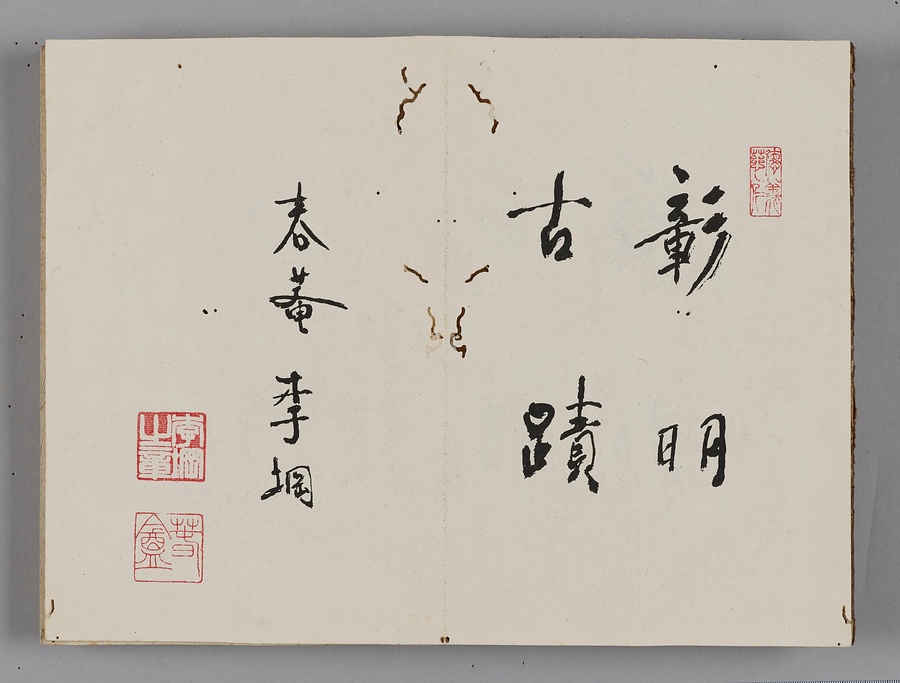 彰明
古蹟
春菴李堈